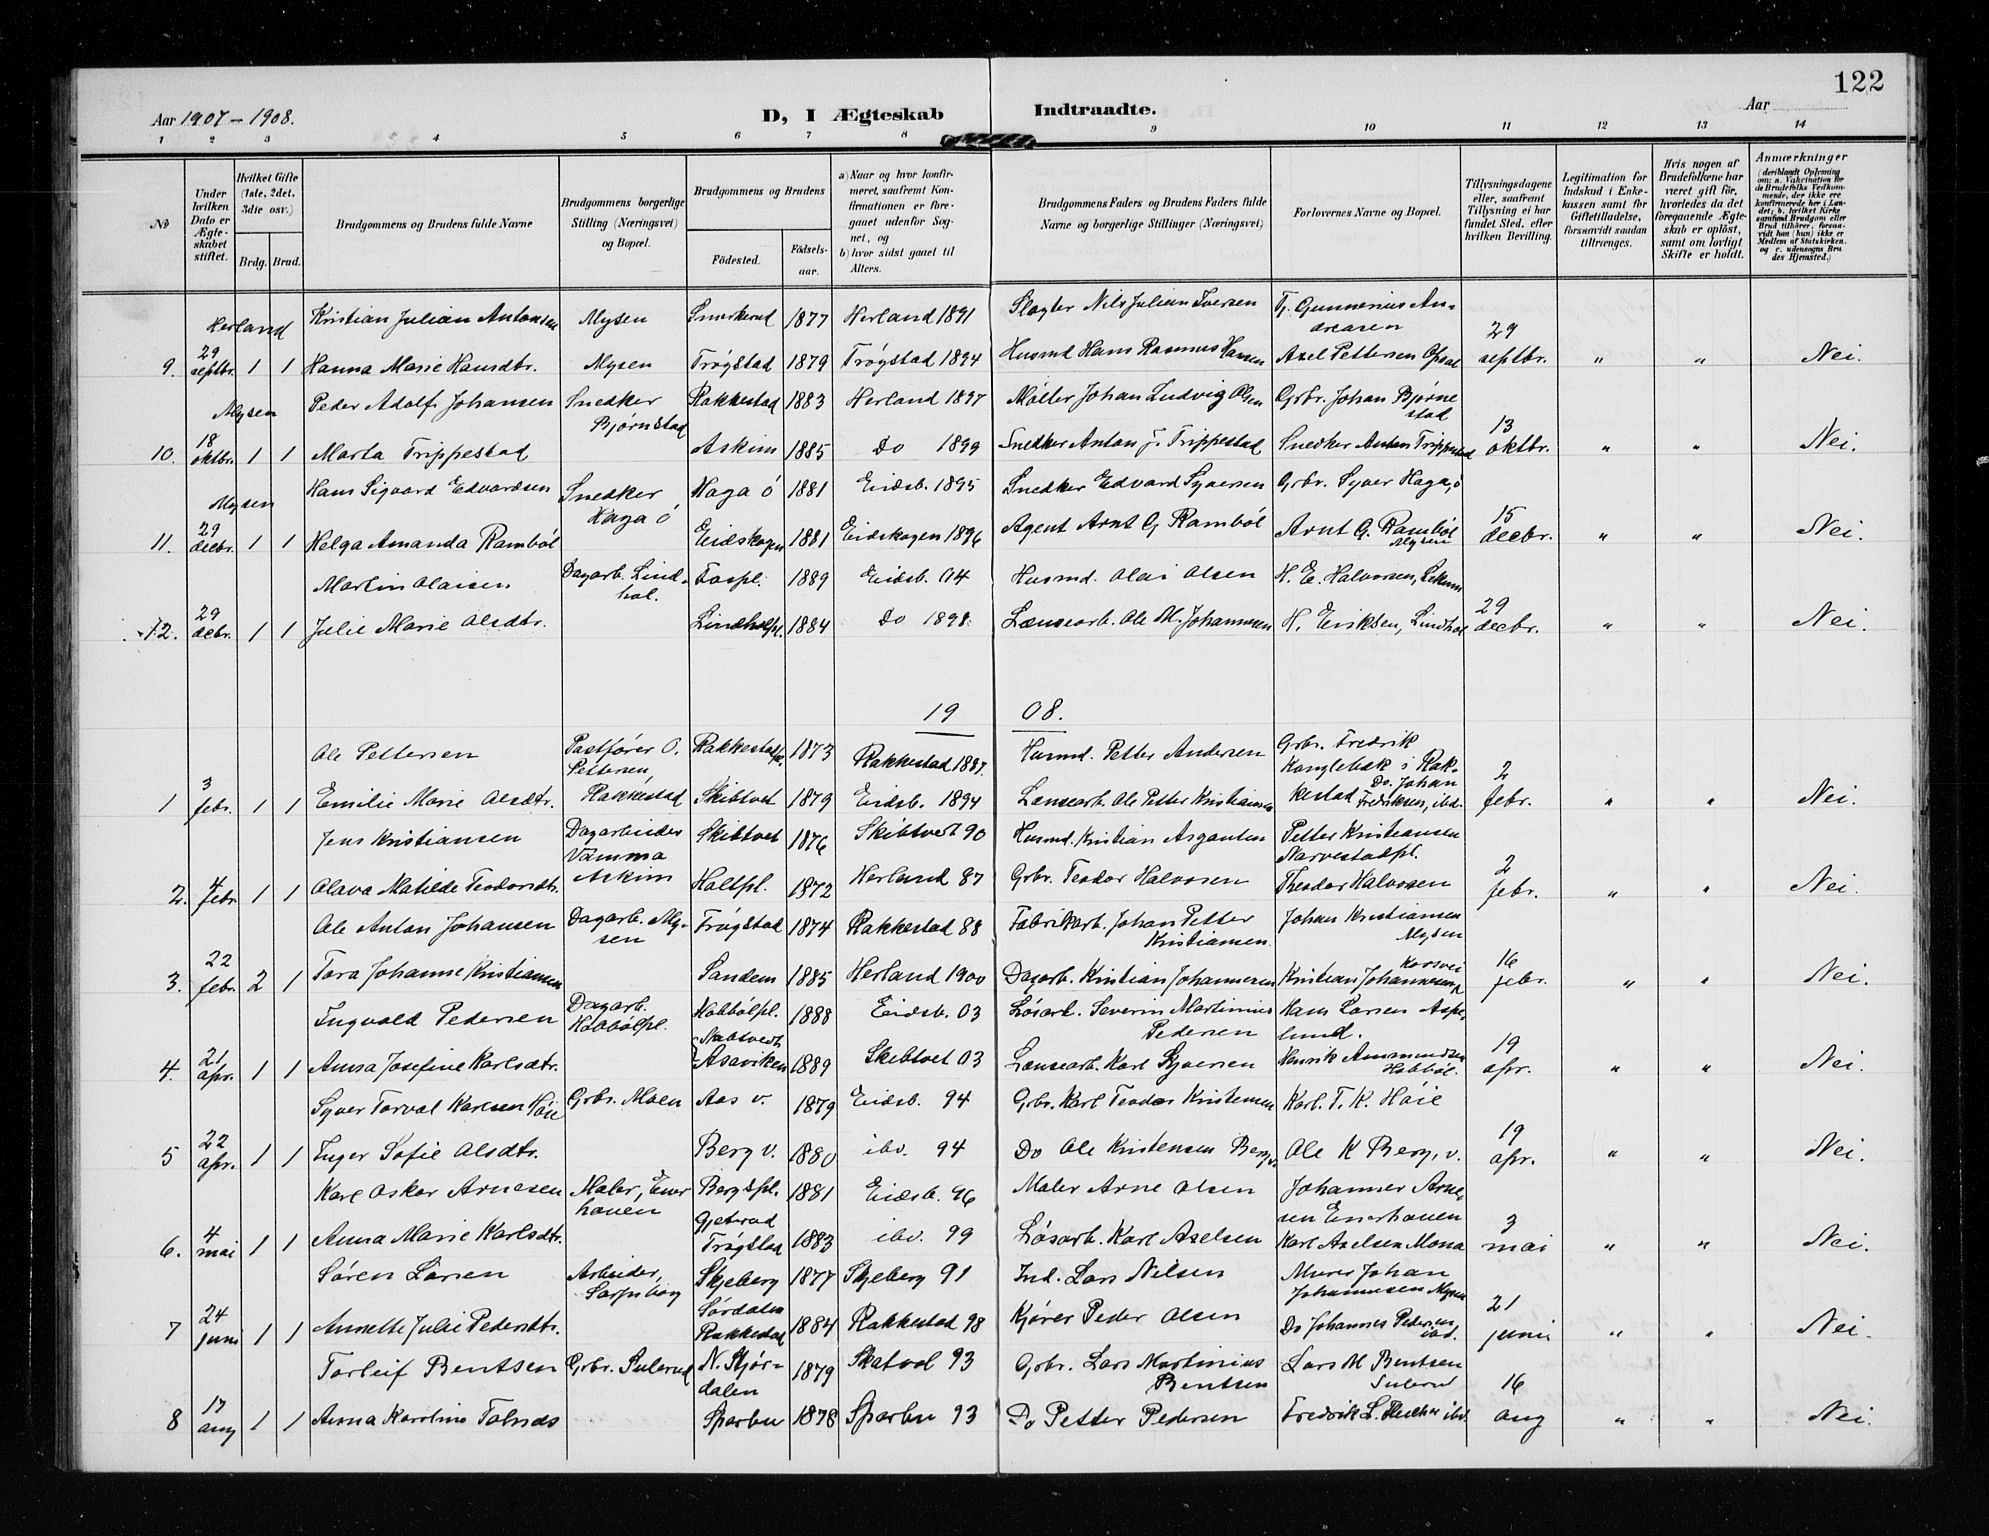 122
Aar 1907 - 1908. D, I Ægteskab Indtraadte. Aar
1 2 3 4 5 6 7 8 9 10 11 12 13 14
No
Under hvilken Dato er Ægteskabet stiftet.
Hvilket Gifte (1ste, 2det, 3die osv.)
Brdg. Brud.
Brudgommens og Brudens fulde Navne
Brudgommens borgerlige Stilling (Næringsvei) og Bopæl.
Brudgommens og Brudens
Födested. Födselsaar.
a) Naar og hvor konfirmeret, saafremt Konfirmationen er foregaaet udenfor Sognet, og
b) hvor sidst gaaet til Alters.
Brudgommens Faders og Brudens Faders fulde Navne og borgerlige Stillinger (Næringsvei)
Forlovernes Navne og Bopæl.
Tillysningsdagene eller, saafremt Tillysning ei har fundet Sted, efter hvilken Bevilling.
Legitimation for Indskud i Enkekassen samt for Giftetilladelse, forsaavidt saadan tiltrænges.
Hvis nogen af Brudefolkene har været gift før, hvorledes da det foregaaende Ægteskab er oplöst, samt om lovligt Skifte er holdt.
Anmærkninger (deriblandt Oplysning om: a. Vakcination for de Brudefolks Vedkommende, der ikke ere konfirmerede her i Landet; b. hvilket Kirkesamfund Brudgom eller Brud tilhører, forsaavidt han (hun) ikke er Medlem af Statskirken, og c. udensogns Brudes Hjemsted.)
Herland Kristian Julian Antonsen Mysen Smerkerud 1877 Herland 1891 Slagter Nils Julian Iversen T. Gunnerius Andreasen
9. 29 septbr. 1 1 Hanna Marie Hansdtr. Mysen Trøgstad 1879 Trøgstad 1894 Husmd Hans Rasmus Hansen Axel Pettersen Opsal 29 septbr. " " Nei.
Mysen Peder Adolf Johansen Snedker Bjørnstad Rakkestad 1883 Herland 1897 Møller Johan Ludvig Olsen Grbr. Johan Bjørnestad
10. 18 oktbr. 1 1 Marta Trippestad Askim 1885 Do 1899 Snedker Anton J. Trippestad Snedker Anton Trippestad 13 oktbr. " " Nei.
Mysen Hans Sigvard Edvardsen Snedker Haga ö Haga ö 1881 Eidsb. 1895 Snedker Edvard Syversen Grbr. Syver Haga, ö
11. 29 decbr. 1 1 Helga Amanda Ramböl Eidskogen 1881 Eidskogen 1896 Agent Arnt G Ramböl Arnt G. Ramböl Mysen 15 decbr. " " Nei.
Martin Olaisen Dagarb. Lindhol. Fospl. 1889 Eidsb. 04 Husmd. Olai Olsen H. E. Halvorsen, Lekum
12. 29 decbr. 1 1 Julie Marie Olsdtr. Lindholpl. 1884 Do 1898. Lænsearb. Ole M. Johannesen H. Eriksen, Lindhol 29 decbr. " " Nei.
19 08.
Ole Pettersen Postfører O. Pettersen, Rakkestad Rakkestad 1873 Rakkestad 1887. Husmd. Petter Andersen Grbr. Fredrik Kanglebæk i Rakkestad
1 3 febr. 1 1 Emilie Marie Olsdtr. Skibtvet 1879 Eidsb. 1894 Lænsearb. Ole Petter Kristiansen Do. Johan Fredriksen, ibd. 2 febr. " " Nei.
Jens Kristiansen Dagarbeider Vamma Askim Skibtvet 1876 Skibtvet 90 Husmd. Kristian Asgautsen Petter Kristiansen Narvestadpl.
2. 4 febr. 1 1 Olava Matilde Teodorsdtr. Holtpl. 1872 Herland 87 Grbr. Teodor Halvorsen Theodor Halvorsen 2 febr. " " Nei.
Ole Anton Johansen Dagarb. Mysen Trøgstad 1874 Rakkestad 88 Fabrikarb. Johan Petter Kristiansen. Johan Kristiansen Mysen
3. 22 febr. 2 1 Tora Johanne Kristiansen Sandem 1885 Herland 1900 Dagarb. Kristian Johannesen Kristian Johannesen Korsvei 16 febr. " " Nei.
Ingvald Pedersen Dagarb. Habbölpl. Habbölpl. 1888 Eidsb. 03 Løsarb. Severin Martinius Pedersen Hans Larsen Aspelund.
4. 21 apr. 1 1 Anna Josefine Karlsdtr. Skibtvedt Aasaviken 1889 Skibtvet 03 Lænsearb. Karl Syversen Henrik Ammundsen Habböl. 19 apr. " " Nei.
Syver Torval Karlsen Höie Grbr. Moen Aas v. 1879 Eidsb. 94 Grbr. Karl Teodor Kristensen Karl. T. K. Höie
5 22 apr. 1 1 Inger Sofie Olsdtr. Berg v. 1880 ibv. 94 Do Ole Kristensen Berg v. Ole K Berg, v. 19 apr. " " Nei.
Karl Oskar Arnesen Maler, Enerhauen Bergspl. 1881 Eidsb. 96 Maler Arne Olsen Johannes Arnesen Enerhauen
6. 4 mai 1 1 Anna Marie Karlsdtr. Gjeterud Trøgstad 1883 ibv. 99 Løsarb. Karl Axelsen Karl Axelsen Mona 3 mai " " Nei.
Søren Larsen Arbeider, Sarpsborg Skjeberg 1877 Skjeberg 91 Ind. Lars Nilsen Murer Johan Johannesen Mysen
7 24 juni 1 1 Annette Julie Pedersdtr. Sördalen Rakkestad 1884 Rakkestad 98 Kjører Peder Olsen Do Johannes Pedersen ibd. 21 juni " " Nei.
Torleif Bentsen Grbr. Sulerud N. Stjørdalen 1879 Skatvol 93 Grbr. Lars Martinius Bentsen Lars M Bentsen Sulerud
8 17 aug 1 1 Anna Karoline Tolnæs Sparbu 1878 Sparbu 93 Do Petter Pedersen Fredrik L. ibd. 16 aug " " Nei.